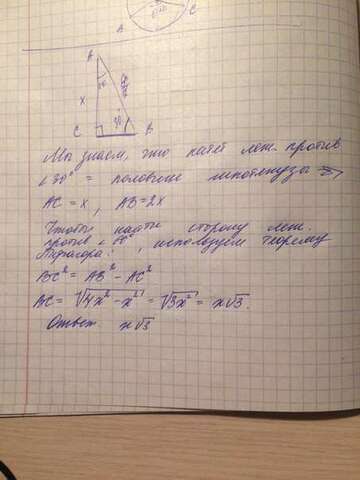 A
C
A
60°
x
2x
30°
C
B
Мы знаем, что катет леж. против
∠30° = половине гипотенузы ⇒
AC = x, AB = 2x
Чтобы найти сторону леж.
против ∠ 60°, используем теорему
Пифагора:
BC² = AB² - AC²
BC = √4x² - x² = √3x² = x√3.
Ответ x√3